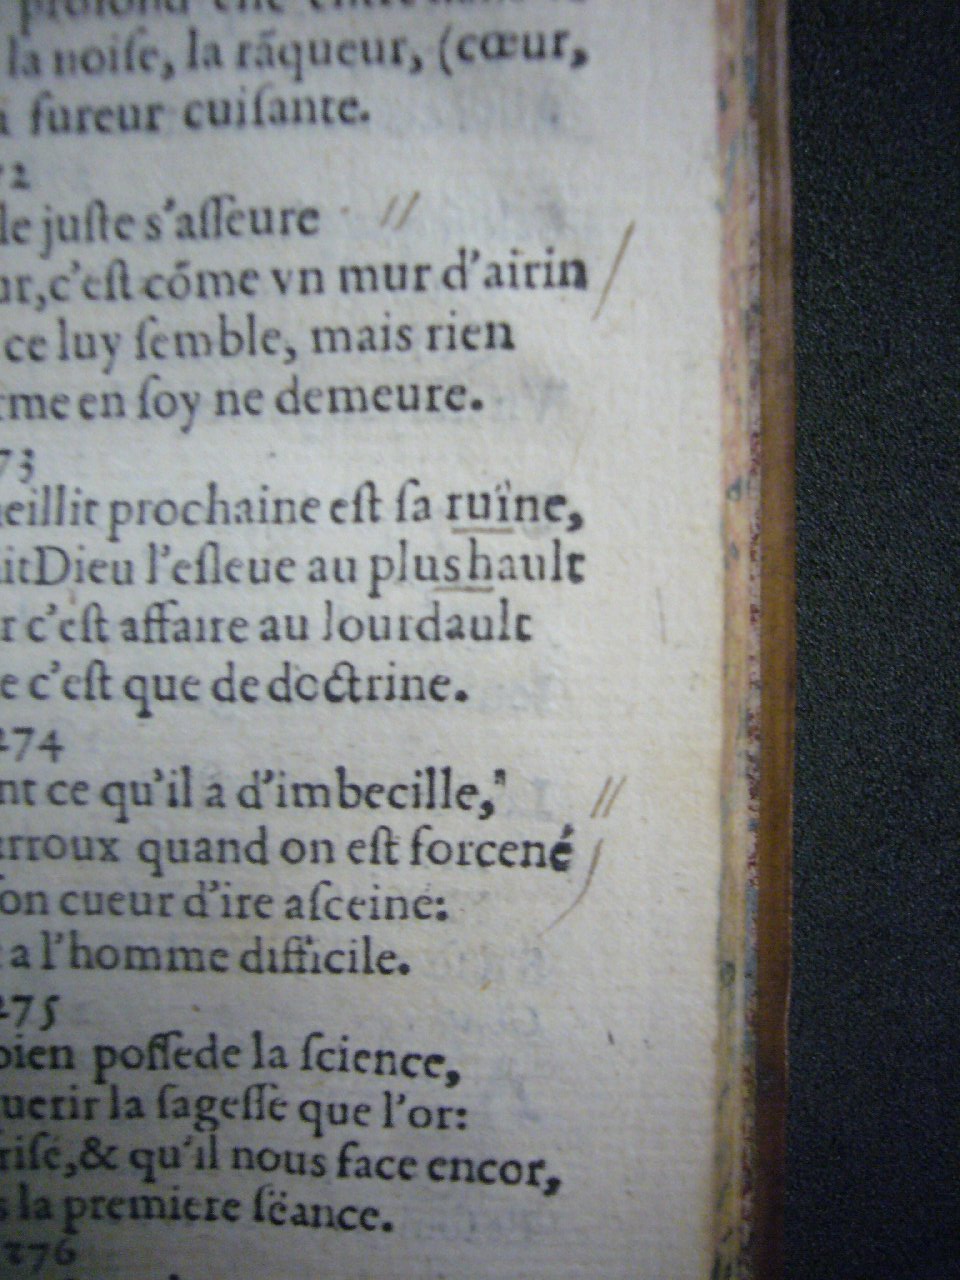 profond
la noiſe, la rãqueur, (cœur,
fureur cuiſante.
72
le juſte s'aſſeure
ur, c'eſt cõme vn mur d'airin
ce luy ſemble, mais rien
rme en ſoy ne demeure.
73
eillit prochaine eſt ſa ruïne,
itDieu l'eſleue au plushault
r c'eſt affaire au lourdault
e c'eſt que de doctrine.
274
nt ce qu'il a d'imbecille,
rroux quand on eſt forcené
on cueur d'ire aſceiné:
a l'homme difficile.
275
bien poſſede la ſcience,
uerir la ſageſſe que l'or:
riſé, & qu'il nous face encor,
s la premiere ſëance.
276